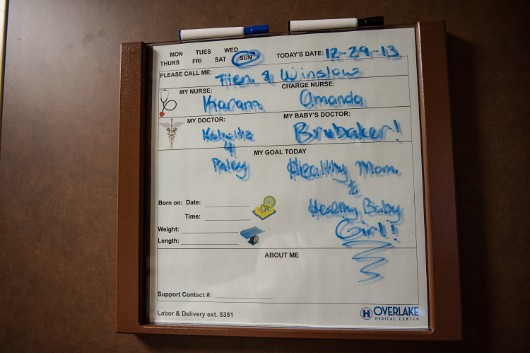 MON TUES WED
THURS FRI SAT SUN TODAY'S DATE: 12-29-13
PLEASE CALL ME: Tien & Winslow
MY NURSE: CHARGE NURSE:
Karam Amanda
MY DOCTOR: MY BABY'S DOCTOR:
& Brubaker!
Paley
MY GOAL TODAY
Healthy Mom
&
Healthy Baby
Girl!!
Born on: Date:
Time:
Weight:
Length:
ABOUT ME
Support Contact #:
Labor & Delivery ext. 5351
H OVERLAKE
MEDICAL CENTER